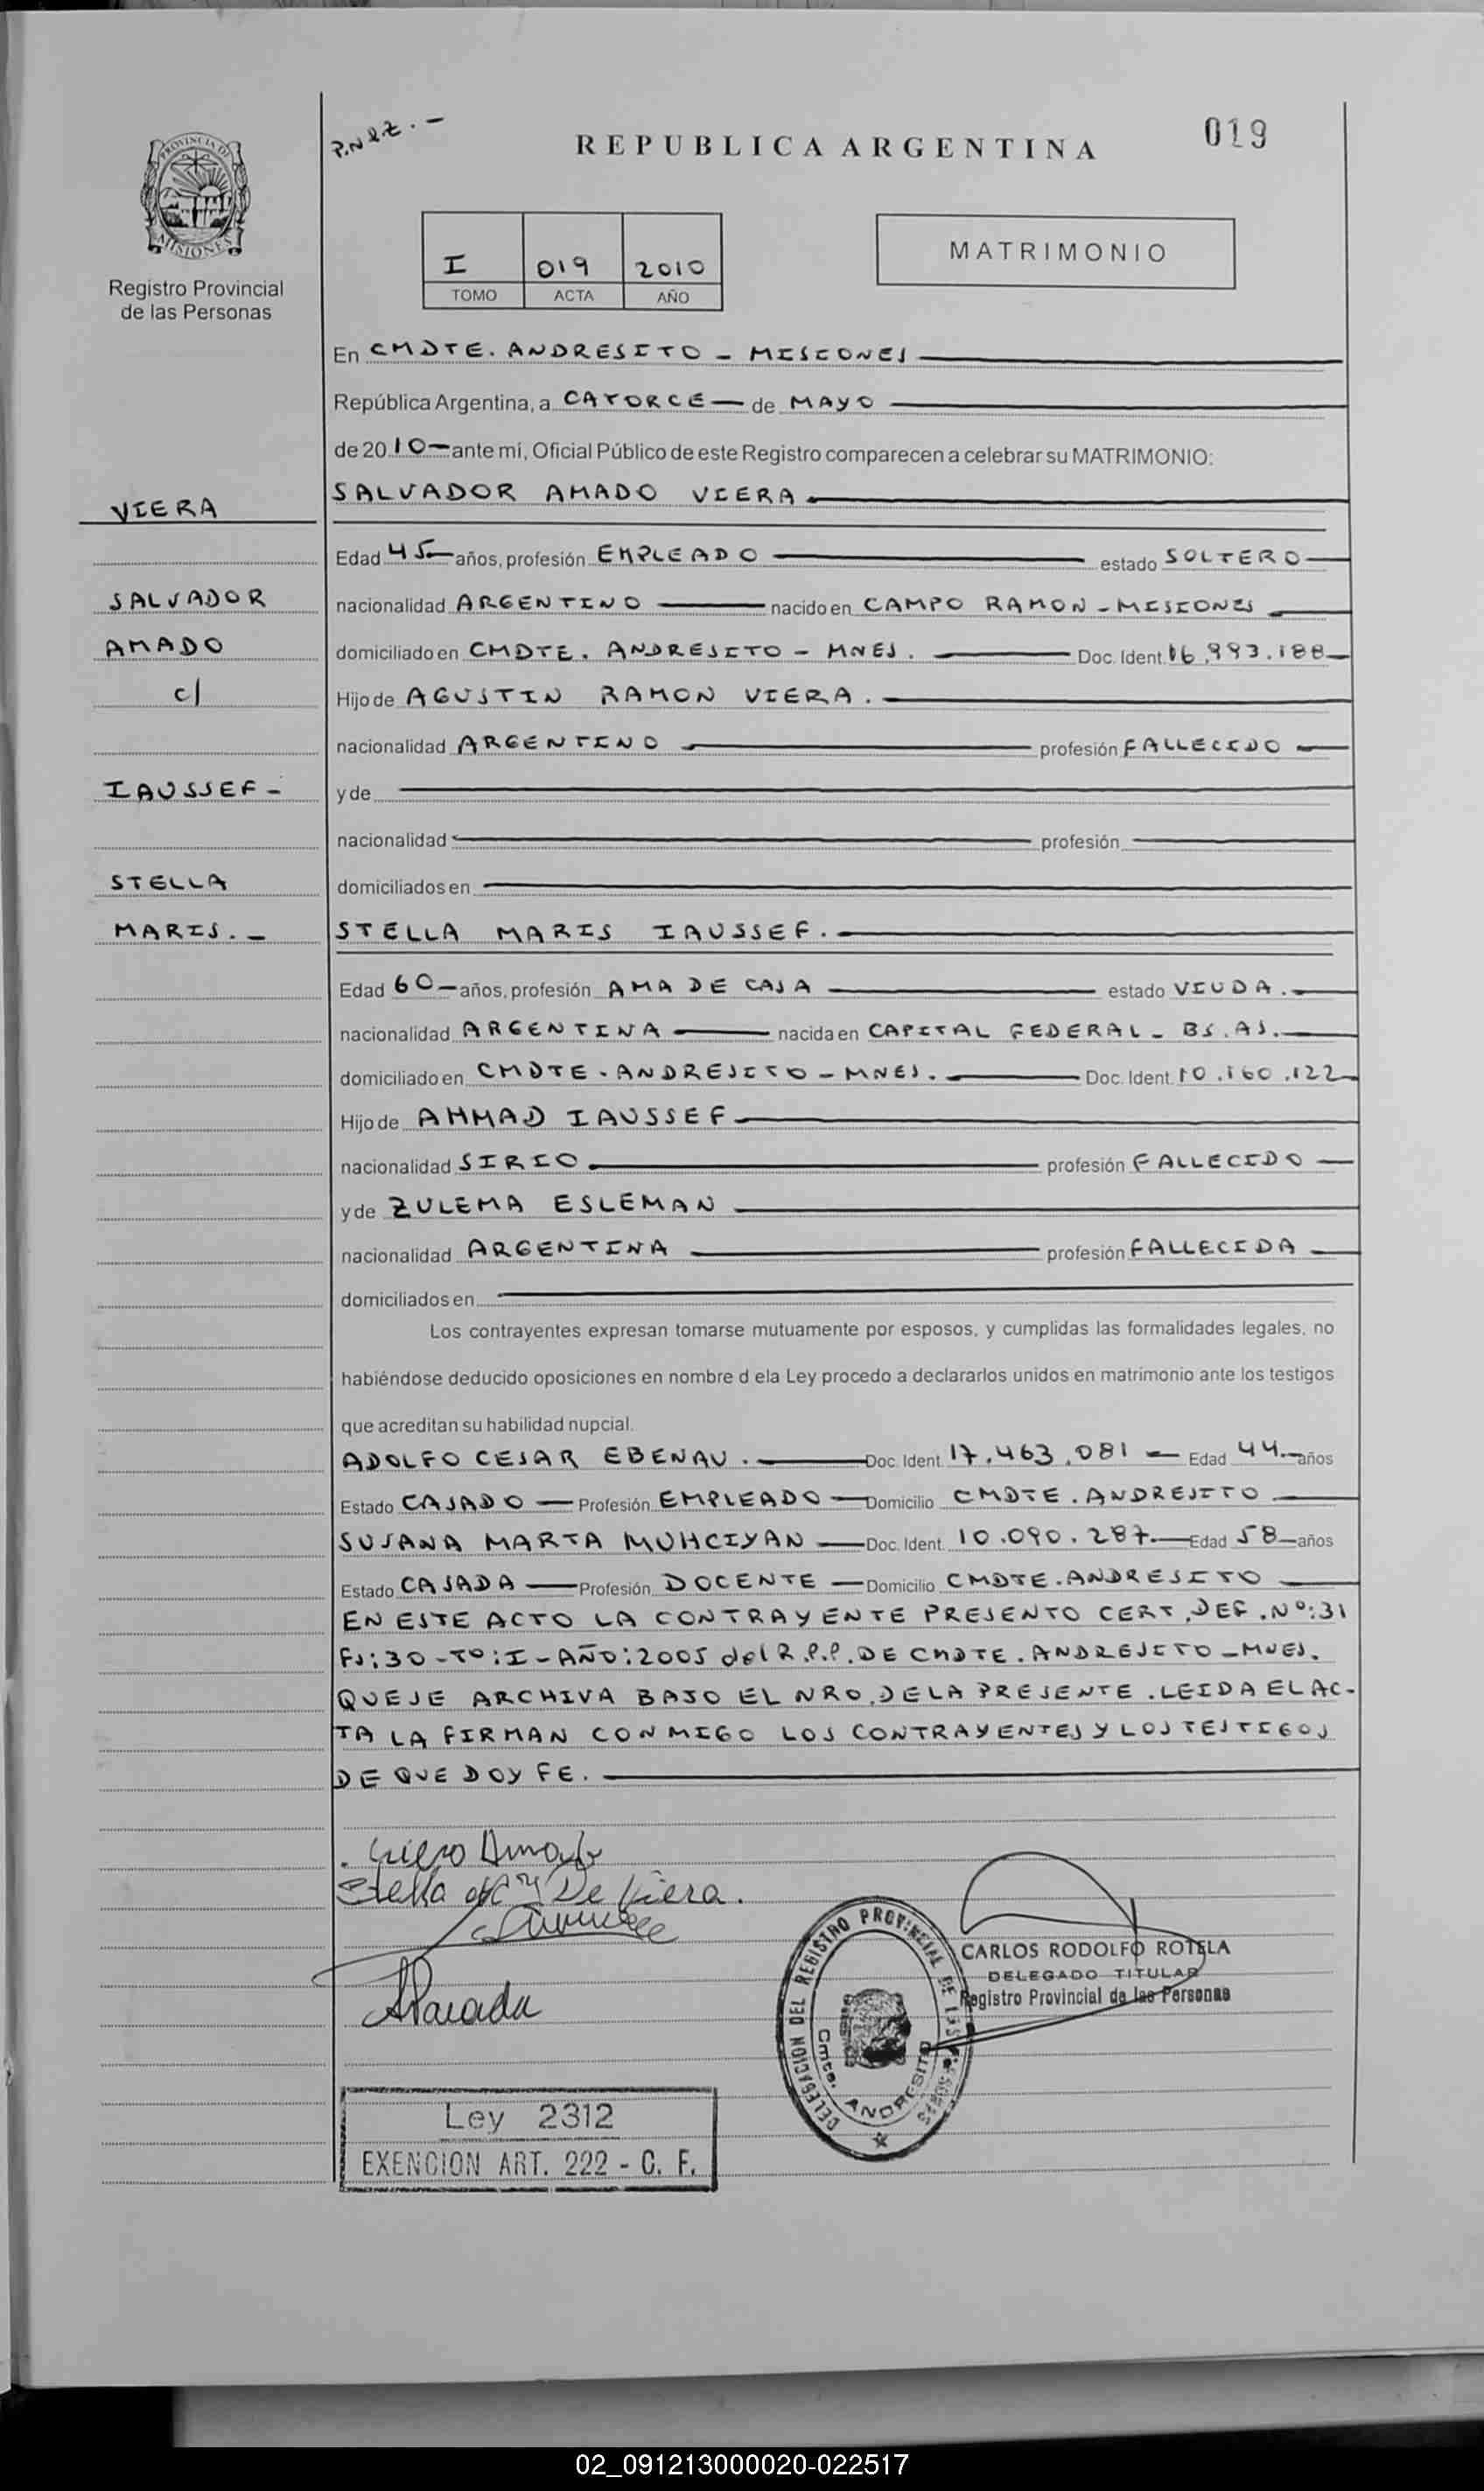 019
REPUBLICA ARGENTINA
PROVINCIA DE
MISIONES
Registro Provincial
de las Personas
I 019 2010
TOMO ACTA AÑO
MATRIMONIO
En CMDTE. ANDRESITO - MISIONES
República Argentina, a CATORCE de MAYO
de 2010 ante mí, Oficial Público de este Registro comparecen a celebrar su MATRIMONIO:
VIERA
SALVADOR AMADO VIERA
Edad 45 años, profesión EMPLEADO estado SOLTERO
SALVADOR
nacionalidad ARGENTINO nacido en CAMPO RAMON - MISIONES
AMADO
domiciliado en CMDTE. ANDRESITO - MNES. Doc. Ident. 16.993.188
c/
Hijo de AGUSTIN RAMON VIERA.
nacionalidad ARGENTINO profesión FALLECIDO
IAUSSEF -
y de
nacionalidad profesión
STELLA
domiciliados en
MARIS. -
STELLA MARIS IAUSSEF.
Edad 60 años, profesión AMA DE CASA estado VIUDA.
nacionalidad ARGENTINA nacida en CAPITAL FEDERAL - BS. AS.
domiciliado en CMDTE. ANDRESITO - MNES. Doc. Ident. 10.160.122
Hijo de AHMAD IAUSSEF
nacionalidad SIRIO. profesión FALLECIDO
y de ZULEMA ESLEMAN
nacionalidad ARGENTINA profesión FALLECIDA
domiciliados en
Los contrayentes expresan tomarse mutuamente por esposos, y cumplidas las formalidades legales, no
habiéndose deducido oposiciones en nombre d ela Ley procedo a declararlos unidos en matrimonio ante los testigos
que acreditan su habilidad nupcial.
ADOLFO CESAR EBENAU. Doc. Ident. 17.463.081 Edad 44 años
Estado CASADO Profesión EMPLEADO Domicilio CMDTE. ANDRESITO
SUSANA MARTA MUHCIYAN Doc. Ident. 10.090.287 Edad 58 años
Estado CASADA Profesión DOCENTE Domicilio CMDTE. ANDRESITO
EN ESTE ACTO LA CONTRAYENTE PRESENTO CERT. DEF. Nº: 31
Fº: 30 - Tº: I - AÑO: 2005 del R.P.P. DE CMDTE. ANDRESITO - MNES.
QUE SE ARCHIVA BAJO EL NRO. DE LA PRESENTE. LEIDA EL AC-
TA LA FIRMAN CONMIGO LOS CONTRAYENTES Y LOS TESTIGOS
DE QUE DOY FE.
Stella De Viera.
CARLOS RODOLFO ROTELA
DELEGADO TITULAR
Registro Provincial de las Personas
DELEGACION DEL REGISTRO PROVINCIAL DE LAS PERSONAS
Cmte. ANDRESITO
Ley 2312
EXENCION ART. 222 - C. F.
02_091213000020-022517